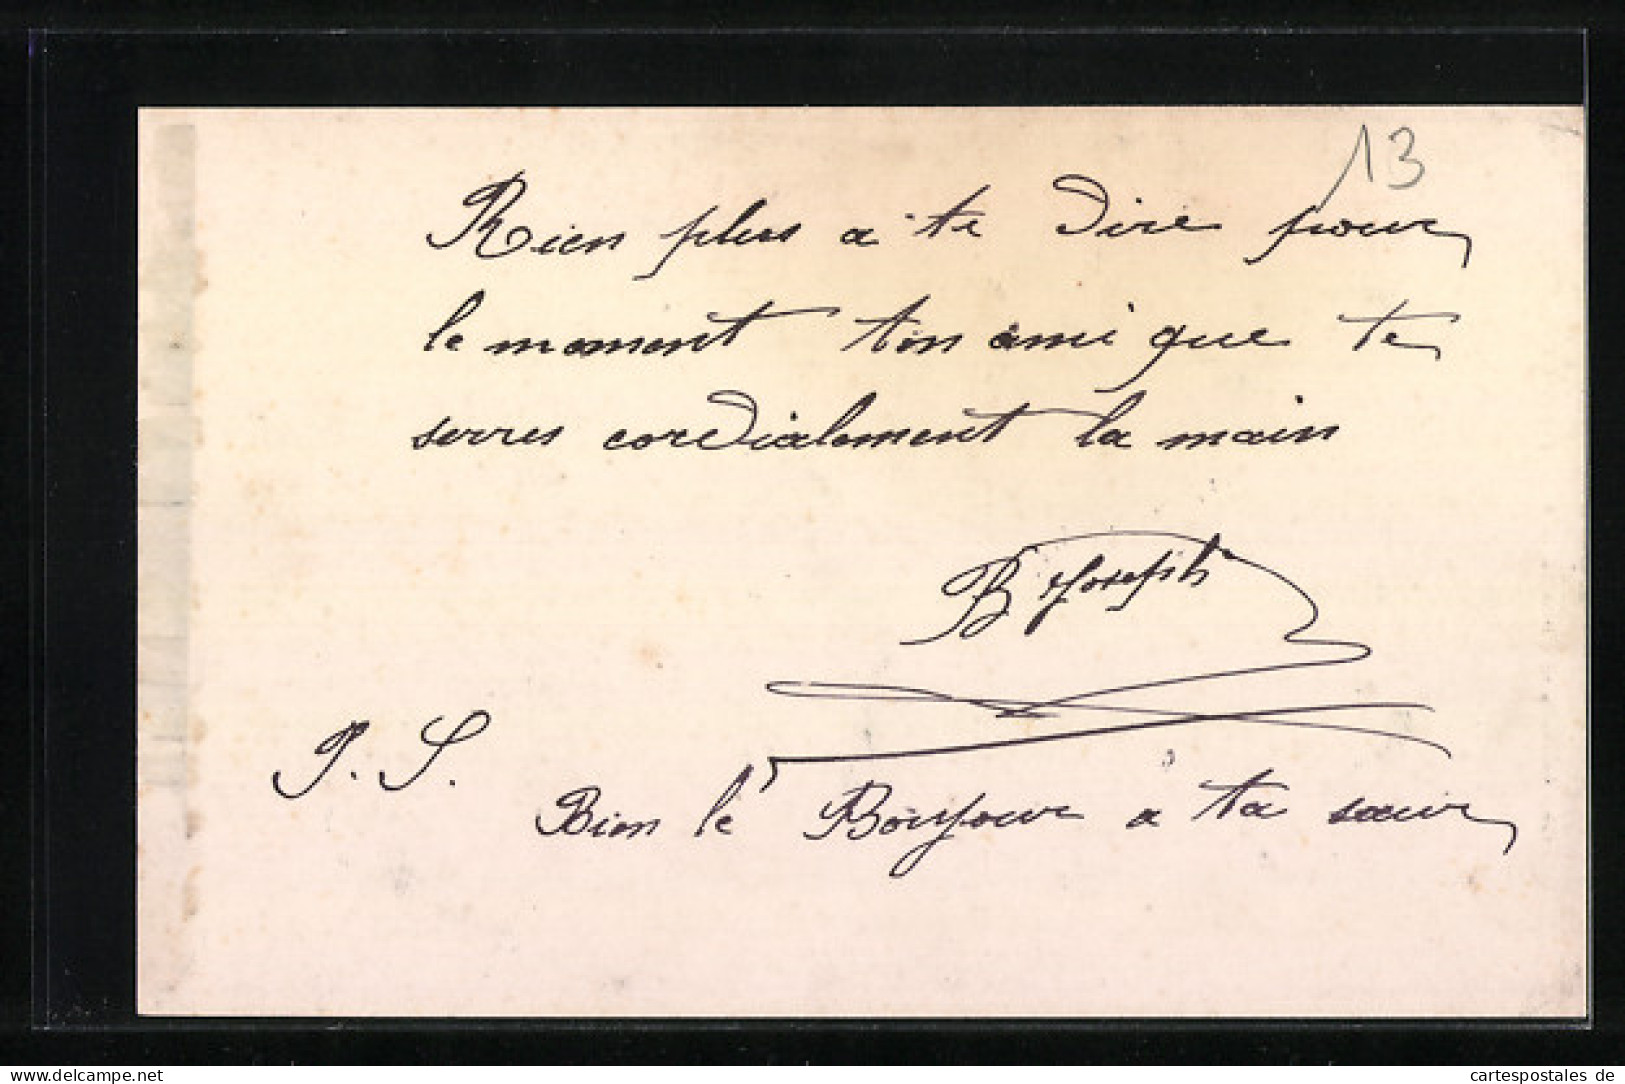 13
Rien plus a te dire pour
le moment ton ami que te
serres cordialement la main
B Joseph
P. S.
Bien le Bonjour a ta sœur
www.delcampe.net
cartespostales de